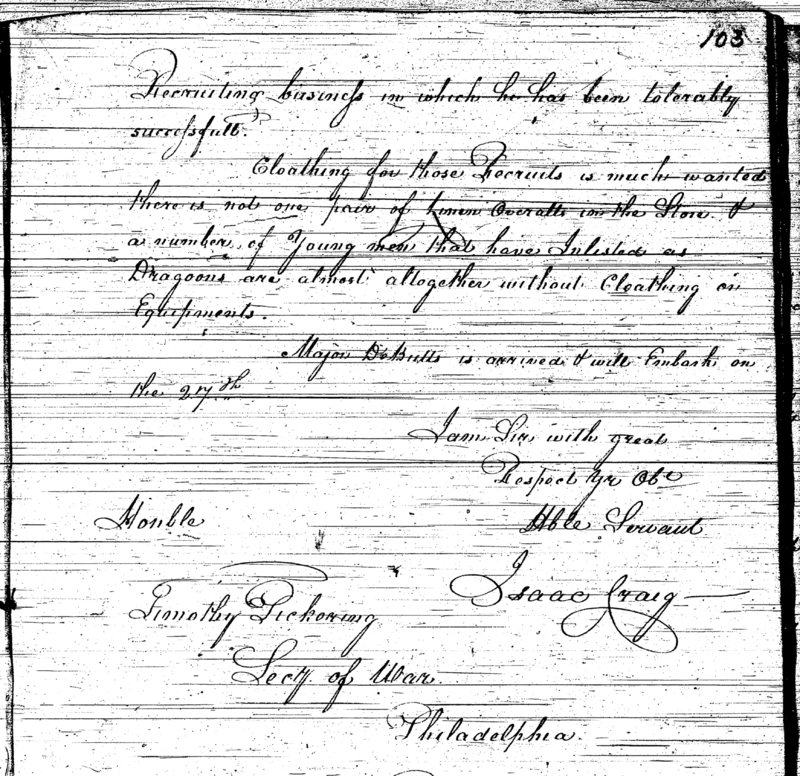 103
Recruiting business in which he has been tolerably
successfull.
Cloathing for those Recruits is much wanted
there is not one pair of Linen Overalls in the Store &
a number of Young men that have Inlisted as
Dragoons are almost altogether without Cloathing or
Equipments.
Major DeButts is arrived & will Embark on
the 27th
I am Sir with great
Respect Yr Obt
Hble Servant
Honble
Isaac Craig
Timothy Pickering
Secy of War
Philadelphia.